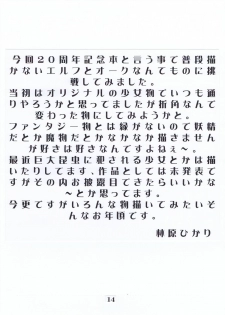 今回２０周年記念本と言う事で普段描
かないエルフとオークなんてものに挑
戦してみました。
当初はオリジナルの少女物でいつも通
りやろうかと思ってましたが折角なんで
変わった物にしてみようかと。
ファンタジー物とは縁がないので妖精
だとか魔物だとかなかなか描きません
が好きは好きなんですよねぇ～。
最近巨大昆虫に犯される少女とかは描
いたりしてます、作品としては未発表で
すがその内お披露目できたらいいかな
～とか思ってます。
今更ですがいろんな物描いてみたいそ
んなお年頃です。
榊原ひかり
14